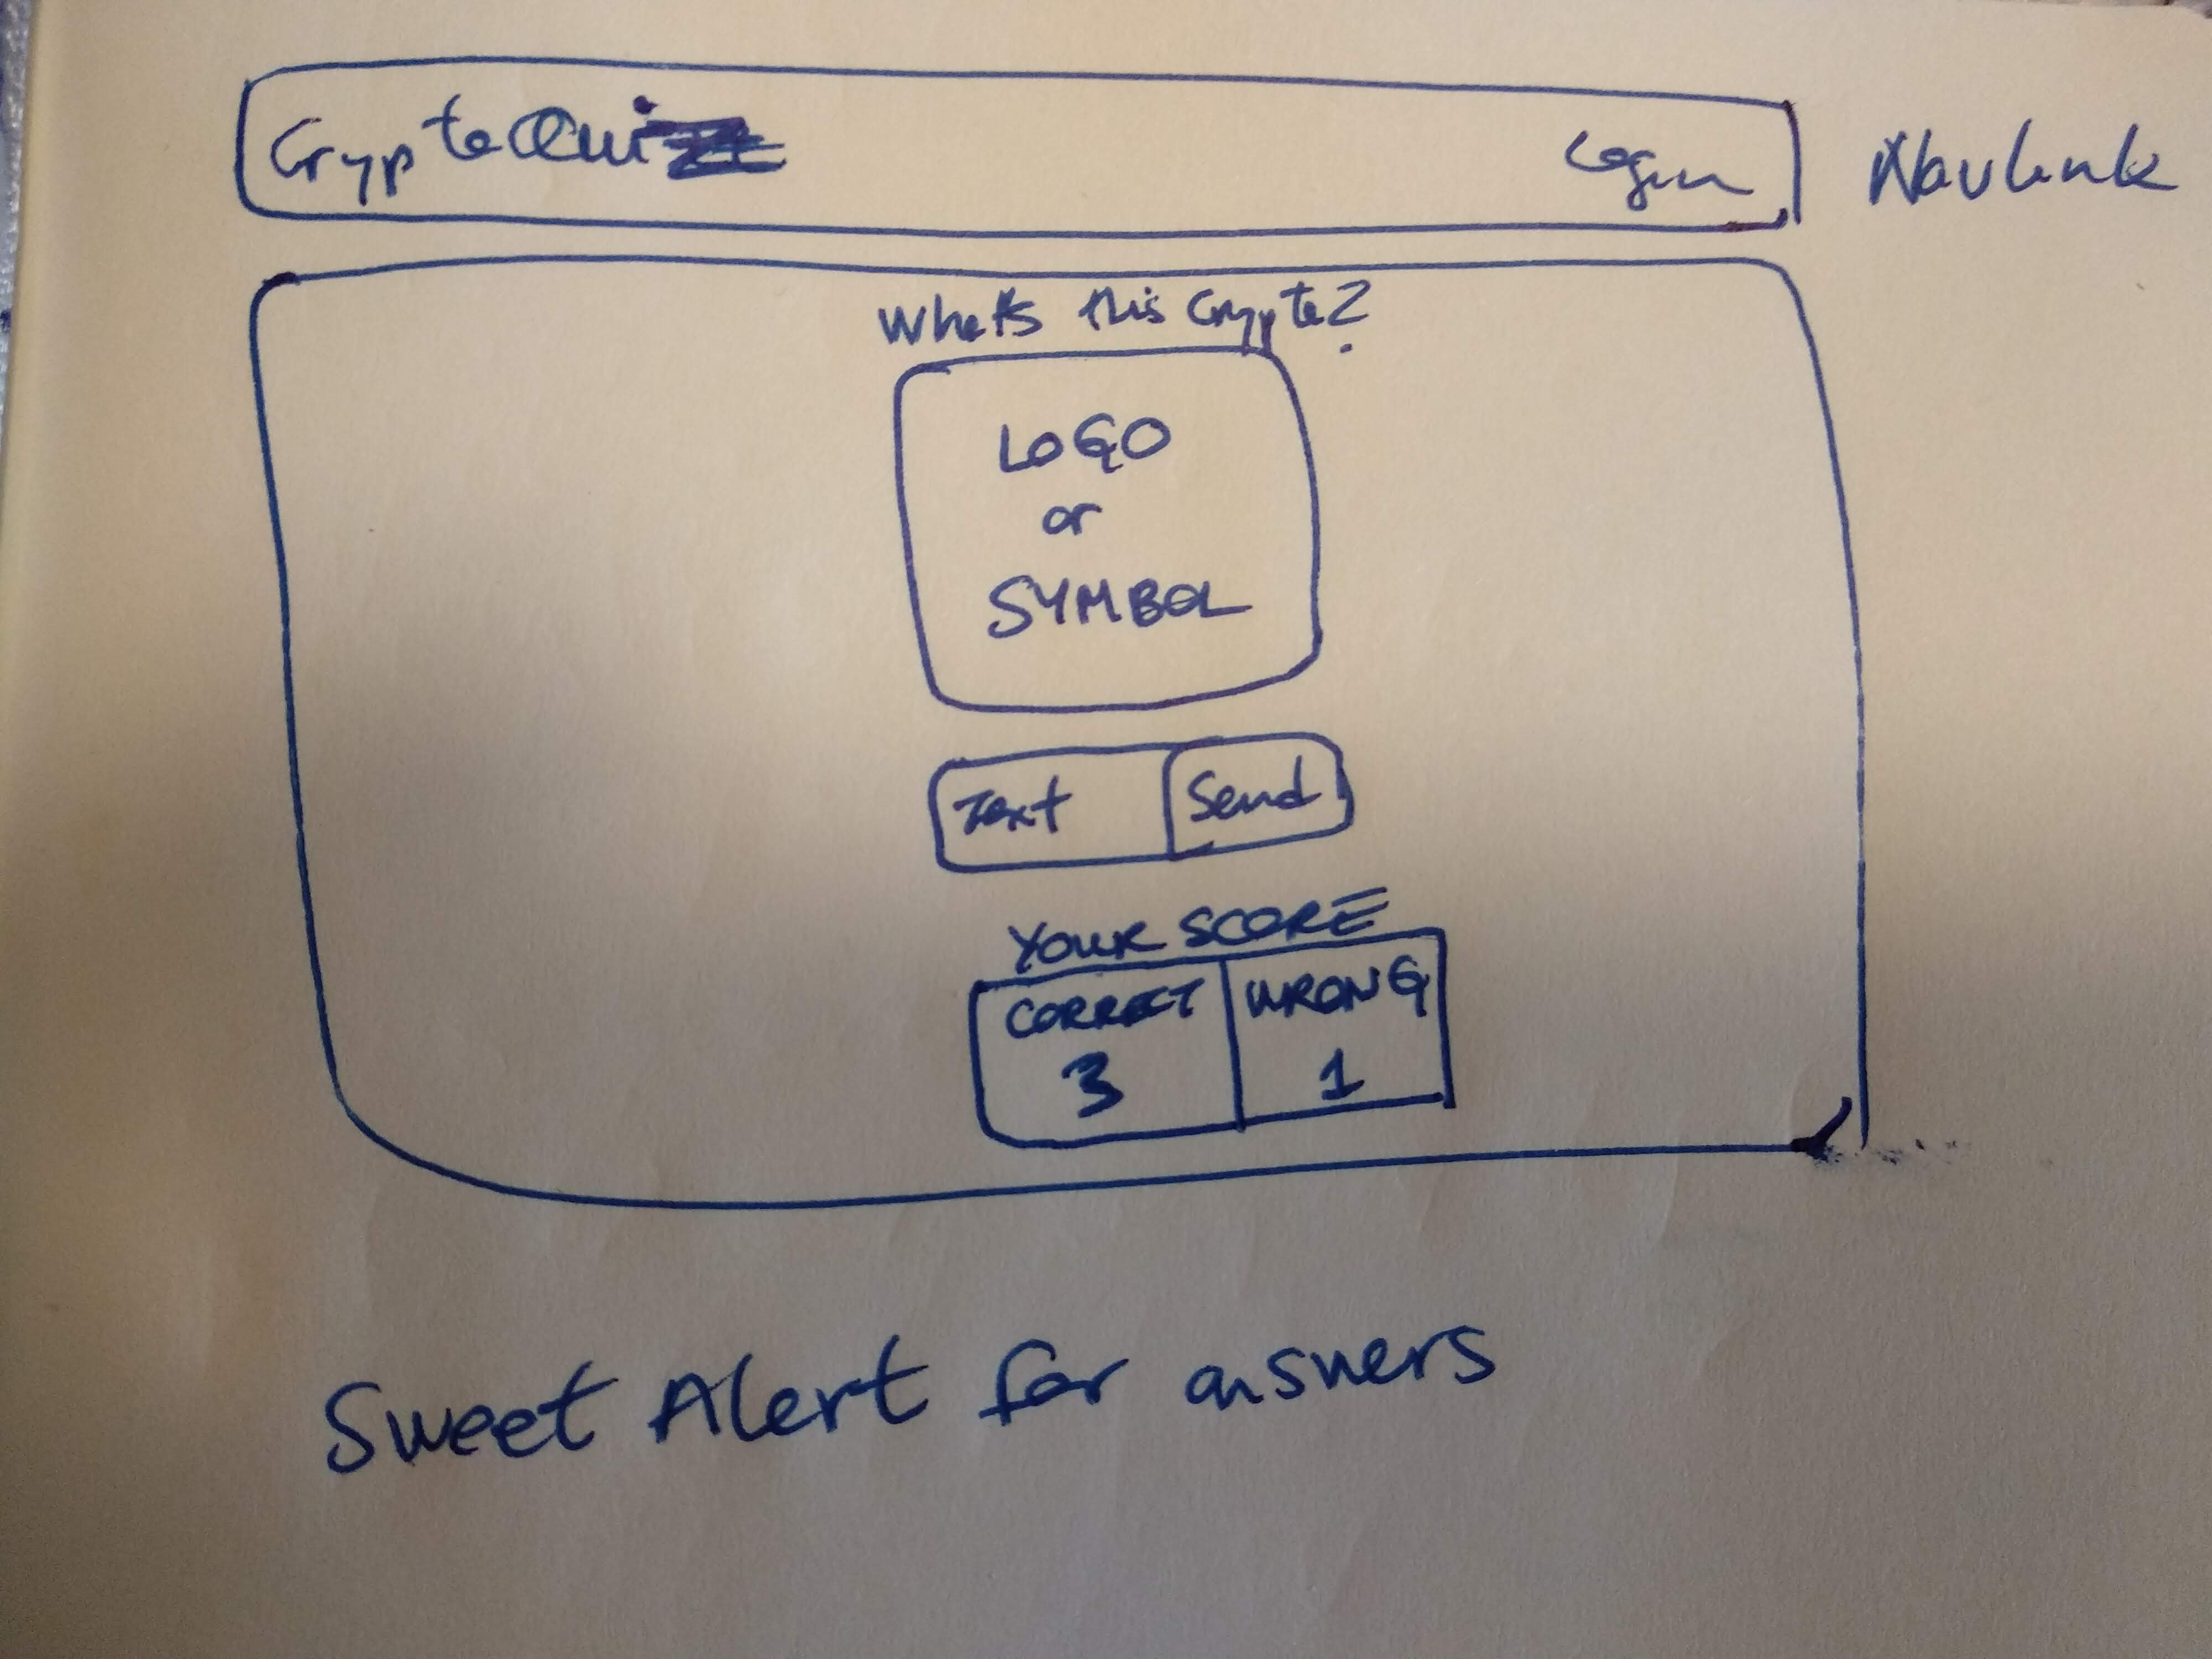 CryptoQuiz
Login
Navlink
What's this Crypto?
LOGO
or
SYMBOL
Text
Send
YOUR SCORE
CORRECT
WRONG
3
1
Sweet Alert for answers